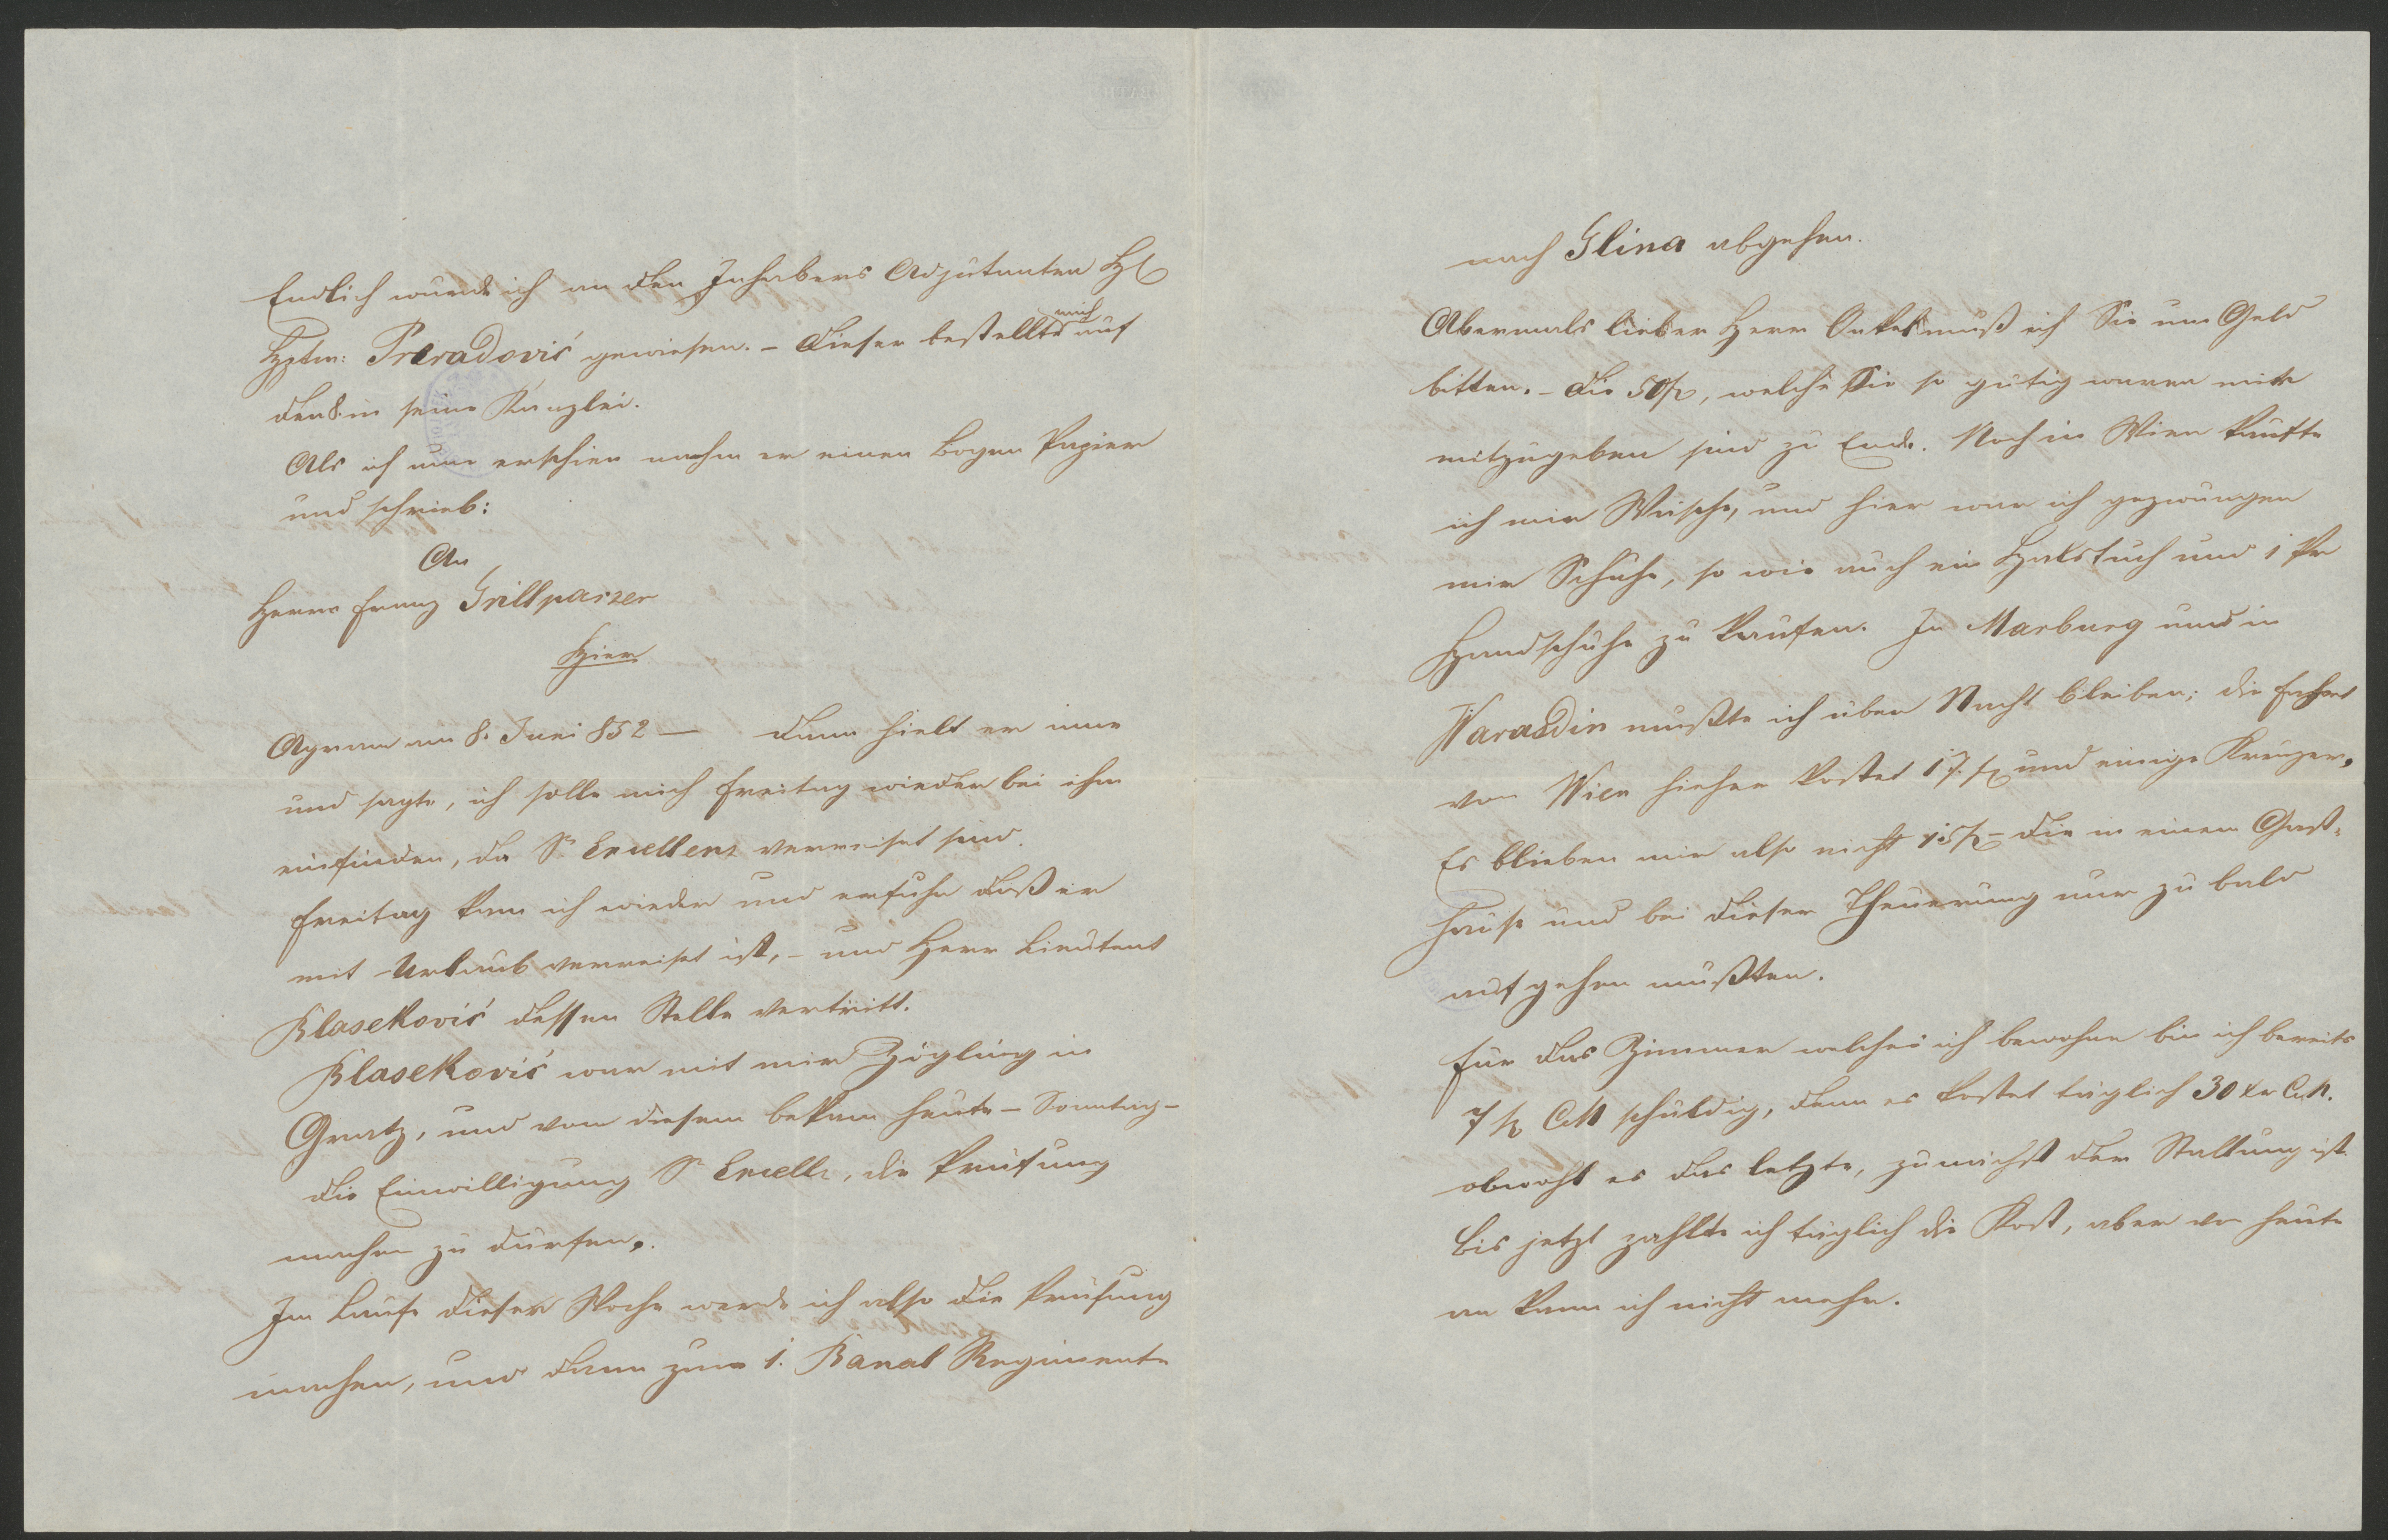 Endlich wurde ich an den Inhabers Adjutanten H
Hptm: Preradović gewiesen. – Dieser bestellte mich auf
den 8. in seine Kanzlei.
Als ich nun erschien nahm er einen Bogen Papier
und schrieb:
An
Herrn Franz Grillparzer
Hier
Agram am 8. Juni 852 — Dann hielt er inne
und sagte, ich solle mich Freitag wieder bei ihm
einfinden, da Sr Excellenz verreiset sind.
Freitag kam ich wieder und erfuhr daß er
mit Urlaub verreiset ist, – und Herr Lieutent
Klaseković dessen Stelle vertritt.
Klaseković war mit mir Zögling in
Gratz, und von diesem bekam heute – Sonntag –
die Einwilligung Sr Excellz, die Prüfung
machen zu dürfen.
Im Laufe dieser Woche werde ich also die Prüfung
machen, und dann zum 1. Banal Regimente
nach Glina abgehen.
Abermals lieber Herr Onkel muß ich Sie um Geld
bitten. – Die 50 f, welche Sie so gütig waren mir
mitzugeben sind zu Ende. Noch in Wien kaufte
ich mir Wäsche, und hier war ich gezwungen
mir Schuhe, so wie auch ein Halstuch und 1 Pr
Handschuhe zu kaufen. In Marburg und in
Warasdin mußte ich über Nacht bleiben; die Fahrt
von Wien hieher kostet 17 f und einige Kreuzer.
Es blieben mir also nicht 15 f – die in einem Gast-
hause und bei dieser Theuerung nur zu bald
aufgehen mußten.
Für das Zimmer welches ich bewohne bin ich bereits
7 f CM schuldig, denn es kostet täglich 30 xr C.M.
obwohl es das letzte, zunächst der Stallung ist.
Bis jetzt zahlte ich täglich die Kost, aber von heute
an kann ich nicht mehr.